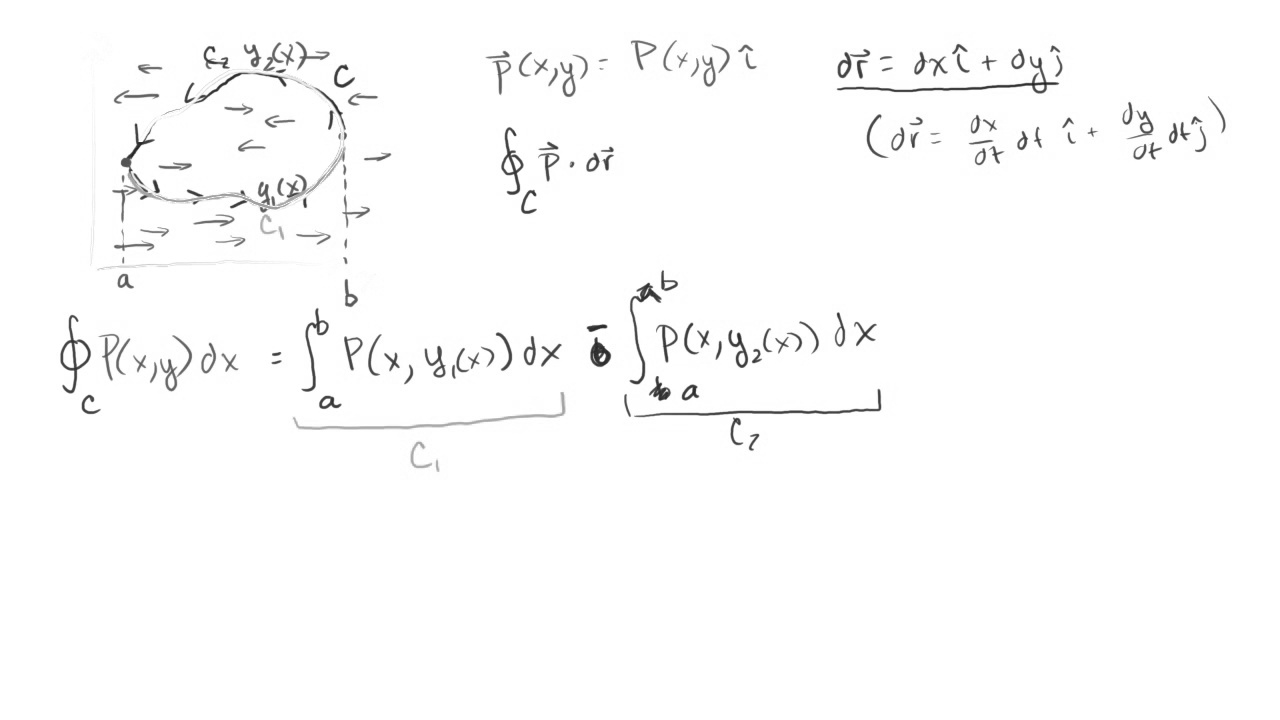 C₂ y₂(x)
C
y₁(x)
C₁
a
b
P⃗(x,y) = P(x,y) î
∮_C P⃗ · dr⃗
dr⃗ = dx î + dy ĵ
(dr⃗ = dx/dt dt î + dy/dt dt ĵ)
∮_C P(x,y) dx = ∫_a^b P(x, y₁(x)) dx - ∫_a^b P(x, y₂(x)) dx
C₁
C₂